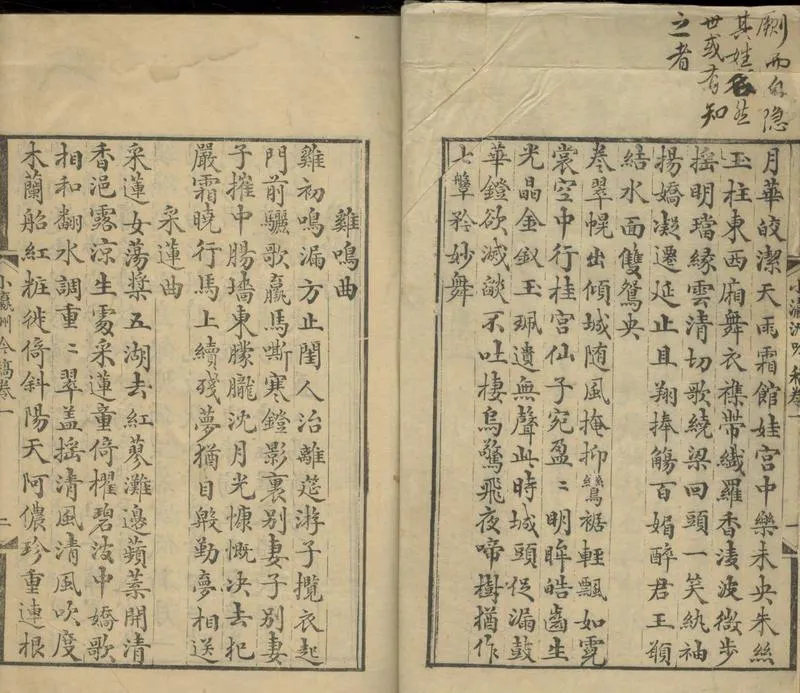 劂而自隐
其姓名然
世或有知
之者
月華皎潔天雨霜館娃宮中樂未央朱絲
玉柱東西廂舞衣襍帶纎羅香淩波微步
揺明璫緣雲清切歌繞梁回頭一笑紈袖
揚嬌凝遷延止且翔捧觴百媚醉君王願
結水面雙鴛央
卷翠幌出傾城随風掩抑鸞裾輕飄如霓
裳空中行桂宮仙子宛盈〻明眸皓齒生
光晶金釵玉珮遺無聲此時城頭促漏鼓
華鐙欲滅燄不吐棲烏驚飛夜啼樹猶作
七矜妙舞
雞鳴曲
雞初鳴漏方止閨人治離筵游子攬衣起
門前驪歌羸馬嘶寒鐙影裏别妻子别妻
子摧中腸墻東朦朧沈月光慷慨决去犯
嚴霜曉行馬上續殘夢猶自殷勤夢相送
采蓮曲
采蓮女蕩槳五湖去紅蓼灘邊蘋葉開清
香浥露涼生處采蓮童倚櫂碧波中嬌歌
相和翻水調重〻翠盖揺清風清風吹度
木蘭船紅粧徙倚斜陽天阿儂珍重連根
小瀛洲吟稿卷一
二